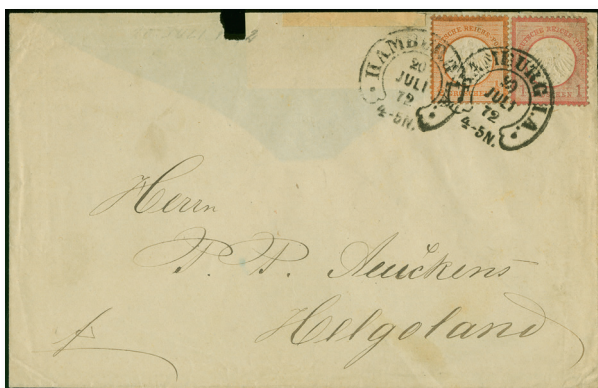 HAMBURG I.A.
20
JULI
72
4-5N.
HAMBURG I.A.
20
JULI
72
4-5N.
DEUTSCHE REICHS-POST
1
Herrn
P. P. Aeuckens
Helgoland
fr